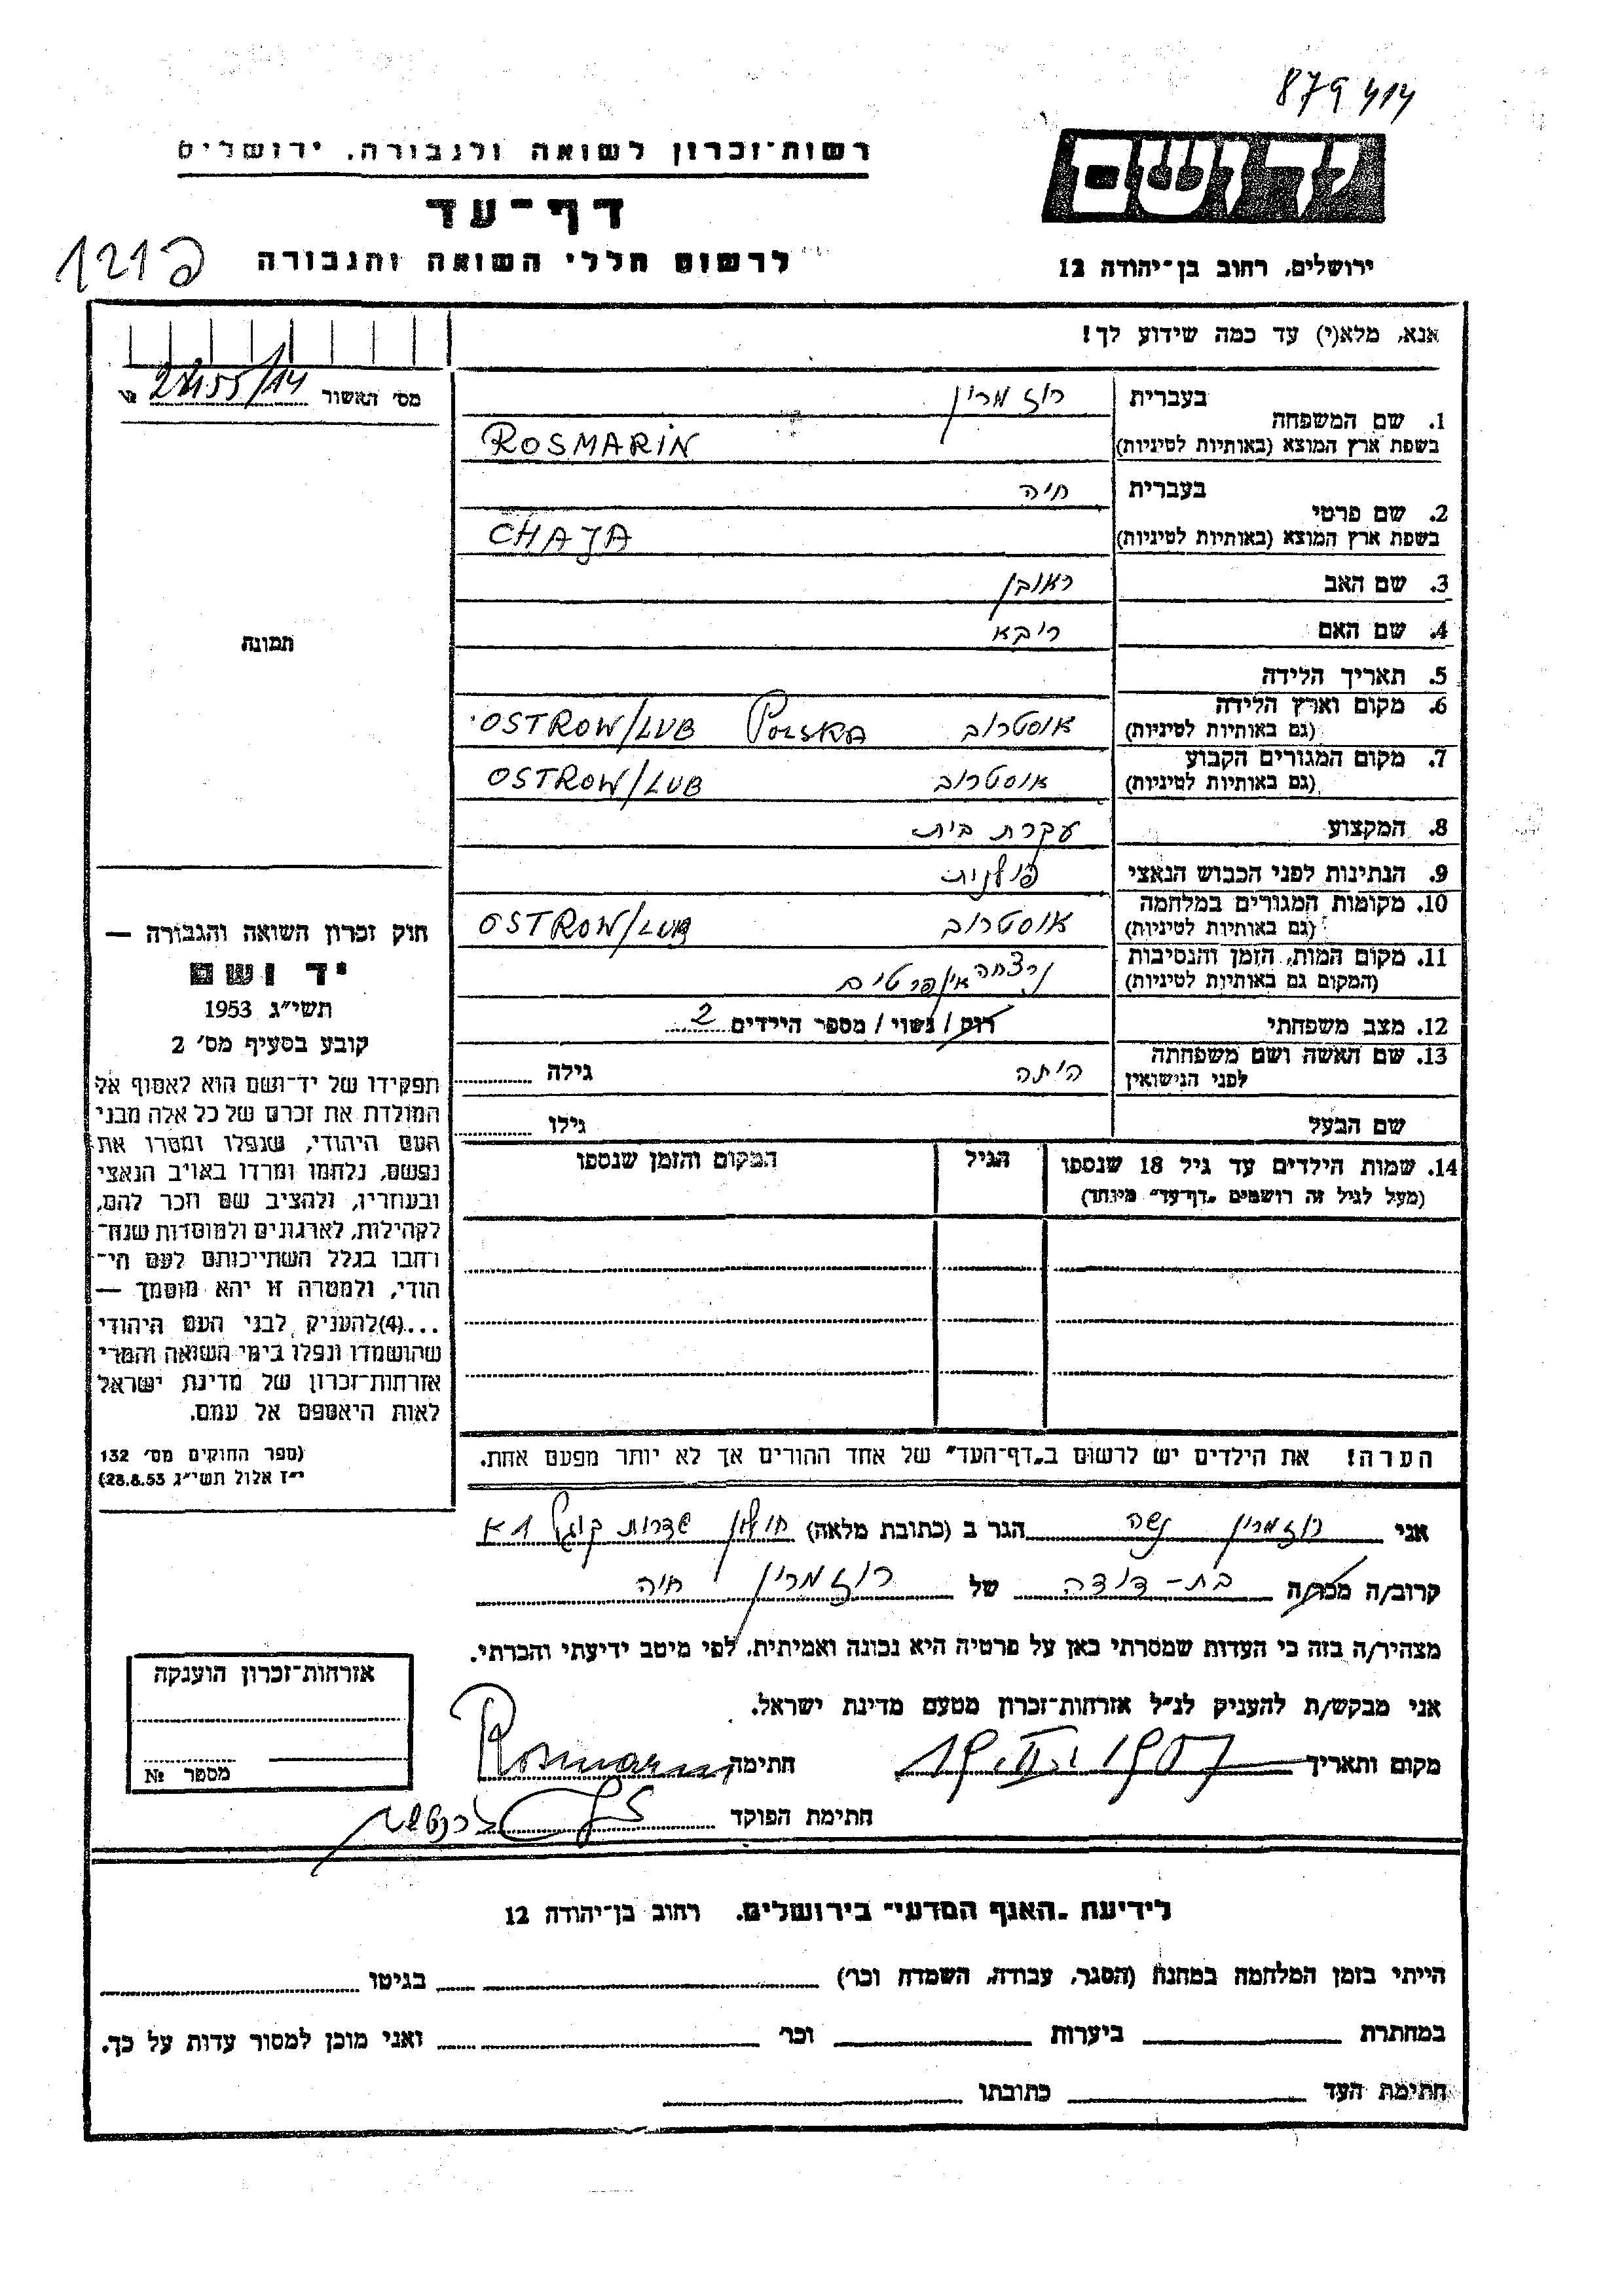 879414
רשות־זכרון לשואה ולגבורה, ירושלים
יד ושם
דף־עד
לרשום חללי השואה והגבורה
ירושלים, רחוב בן־יהודה 12
אנא, מלא(י) עד כמה שידוע לך!
מס׳ האשור №
בעברית רוזמרין
1. שם המשפחה
בשפת ארץ המוצא (באותיות לטיניות) ROSMARIN
בעברית חיה
2. שם פרטי
בשפת ארץ המוצא (באותיות לטיניות) CHAJA
3. שם האב ראובן
4. שם האם ריבא
תמונה
5. תאריך הלידה
6. מקום וארץ הלידה
(גם באותיות לטיניות) אוסטרוב POLSKA OSTROW/LUB
7. מקום המגורים הקבוע
(גם באותיות לטיניות) אוסטרוב OSTROW/LUB
8. המקצוע עקרת בית
9. הנתינות לפני הכבוש הנאצי פולנית
10. מקומות המגורים במלחמה
(גם באותיות לטיניות) אוסטרוב OSTROW/LUB
11. מקום המות, הזמן והנסיבות
(המקום גם באותיות לטיניות) נרצחה אין פרטים
12. מצב משפחתי רווק / נשוי / מספר הילדים 2
13. שם האשה ושם משפחתה
לפני הנישואין היתה גילה
שם הבעל גילו
14. שמות הילדים עד גיל 18 שנספו הגיל המקום והזמן שנספו
(מעל לגיל זה רושמים „דף־עד״ מיוחד)
חוק זכרון השואה והגבורה —
יד ושם
תשי״ג 1953
קובע בסעיף מס׳ 2
תפקידו של יד־ושם הוא לאסוף אל
המולדת את זכרם של כל אלה מבני
העם היהודי, שנפלו ומסרו את
נפשם, נלחמו ומרדו באויב הנאצי
ובעוזריו, ולהציב שם וזכר להם,
לקהילות, לארגונים ולמוסדות שנח־
רבו בגלל השתייכותם לעם הי־
הודי, ולמטרה זו יהא מוסמך —
...(4) להעניק לבני העם היהודי
שהושמדו ונפלו בימי השואה והמרי
אזרחות־זכרון של מדינת ישראל
לאות היאספם אל עמם.
(ספר החוקים מס׳ 132
י״ז אלול תשי״ג 28.8.53)
הערה! את הילדים יש לרשום ב„דף־העד״ של אחד ההורים אך לא יותר מפעם אחת.
אני רוזמרין משה הגר ב (כתובת מלאה) חולון שדרות קוגל 1א
קרוב/ה מכר/ה בת-דודה של רוזמרין חיה
מצהיר/ה בזה כי העדות שמסרתי כאן על פרטיה היא נכונה ואמיתית, לפי מיטב ידיעתי והכרתי.
אני מבקש/ת להעניק לנ״ל אזרחות־זכרון מטעם מדינת ישראל.
מקום ותאריך 1957 חתימה Rosmarin
חתימת הפוקד
אזרחות־זכרון הוענקה
מספר №
לידיעת „האגף המדעי״ בירושלים, רחוב בן־יהודה 12
הייתי בזמן המלחמה במחנה (הסגר, עבודה, השמדה וכו׳) בגיטו
במחתרת ביערות וכו׳ ואני מוכן למסור עדות על כך.
חתימת העד כתובתו